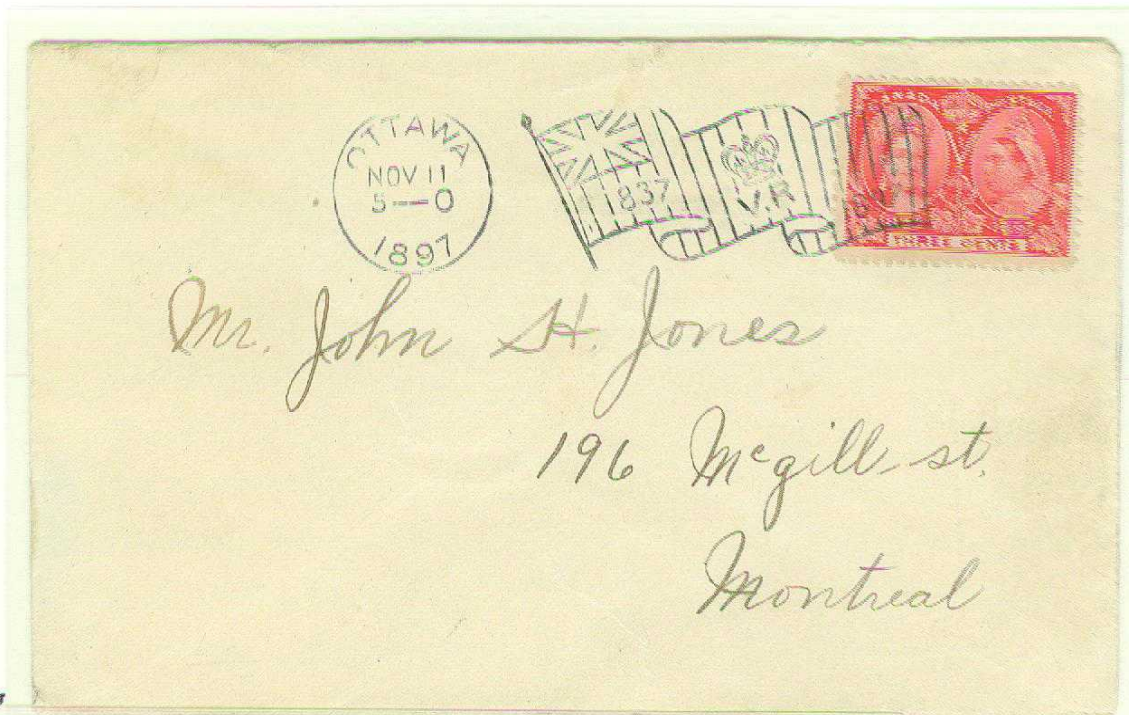 OTTAWA
NOV 11
5—0
1897
1837
V.R.
1897
THREE CENTS
Mr. John H. Jones
196 McGill st.
Montreal